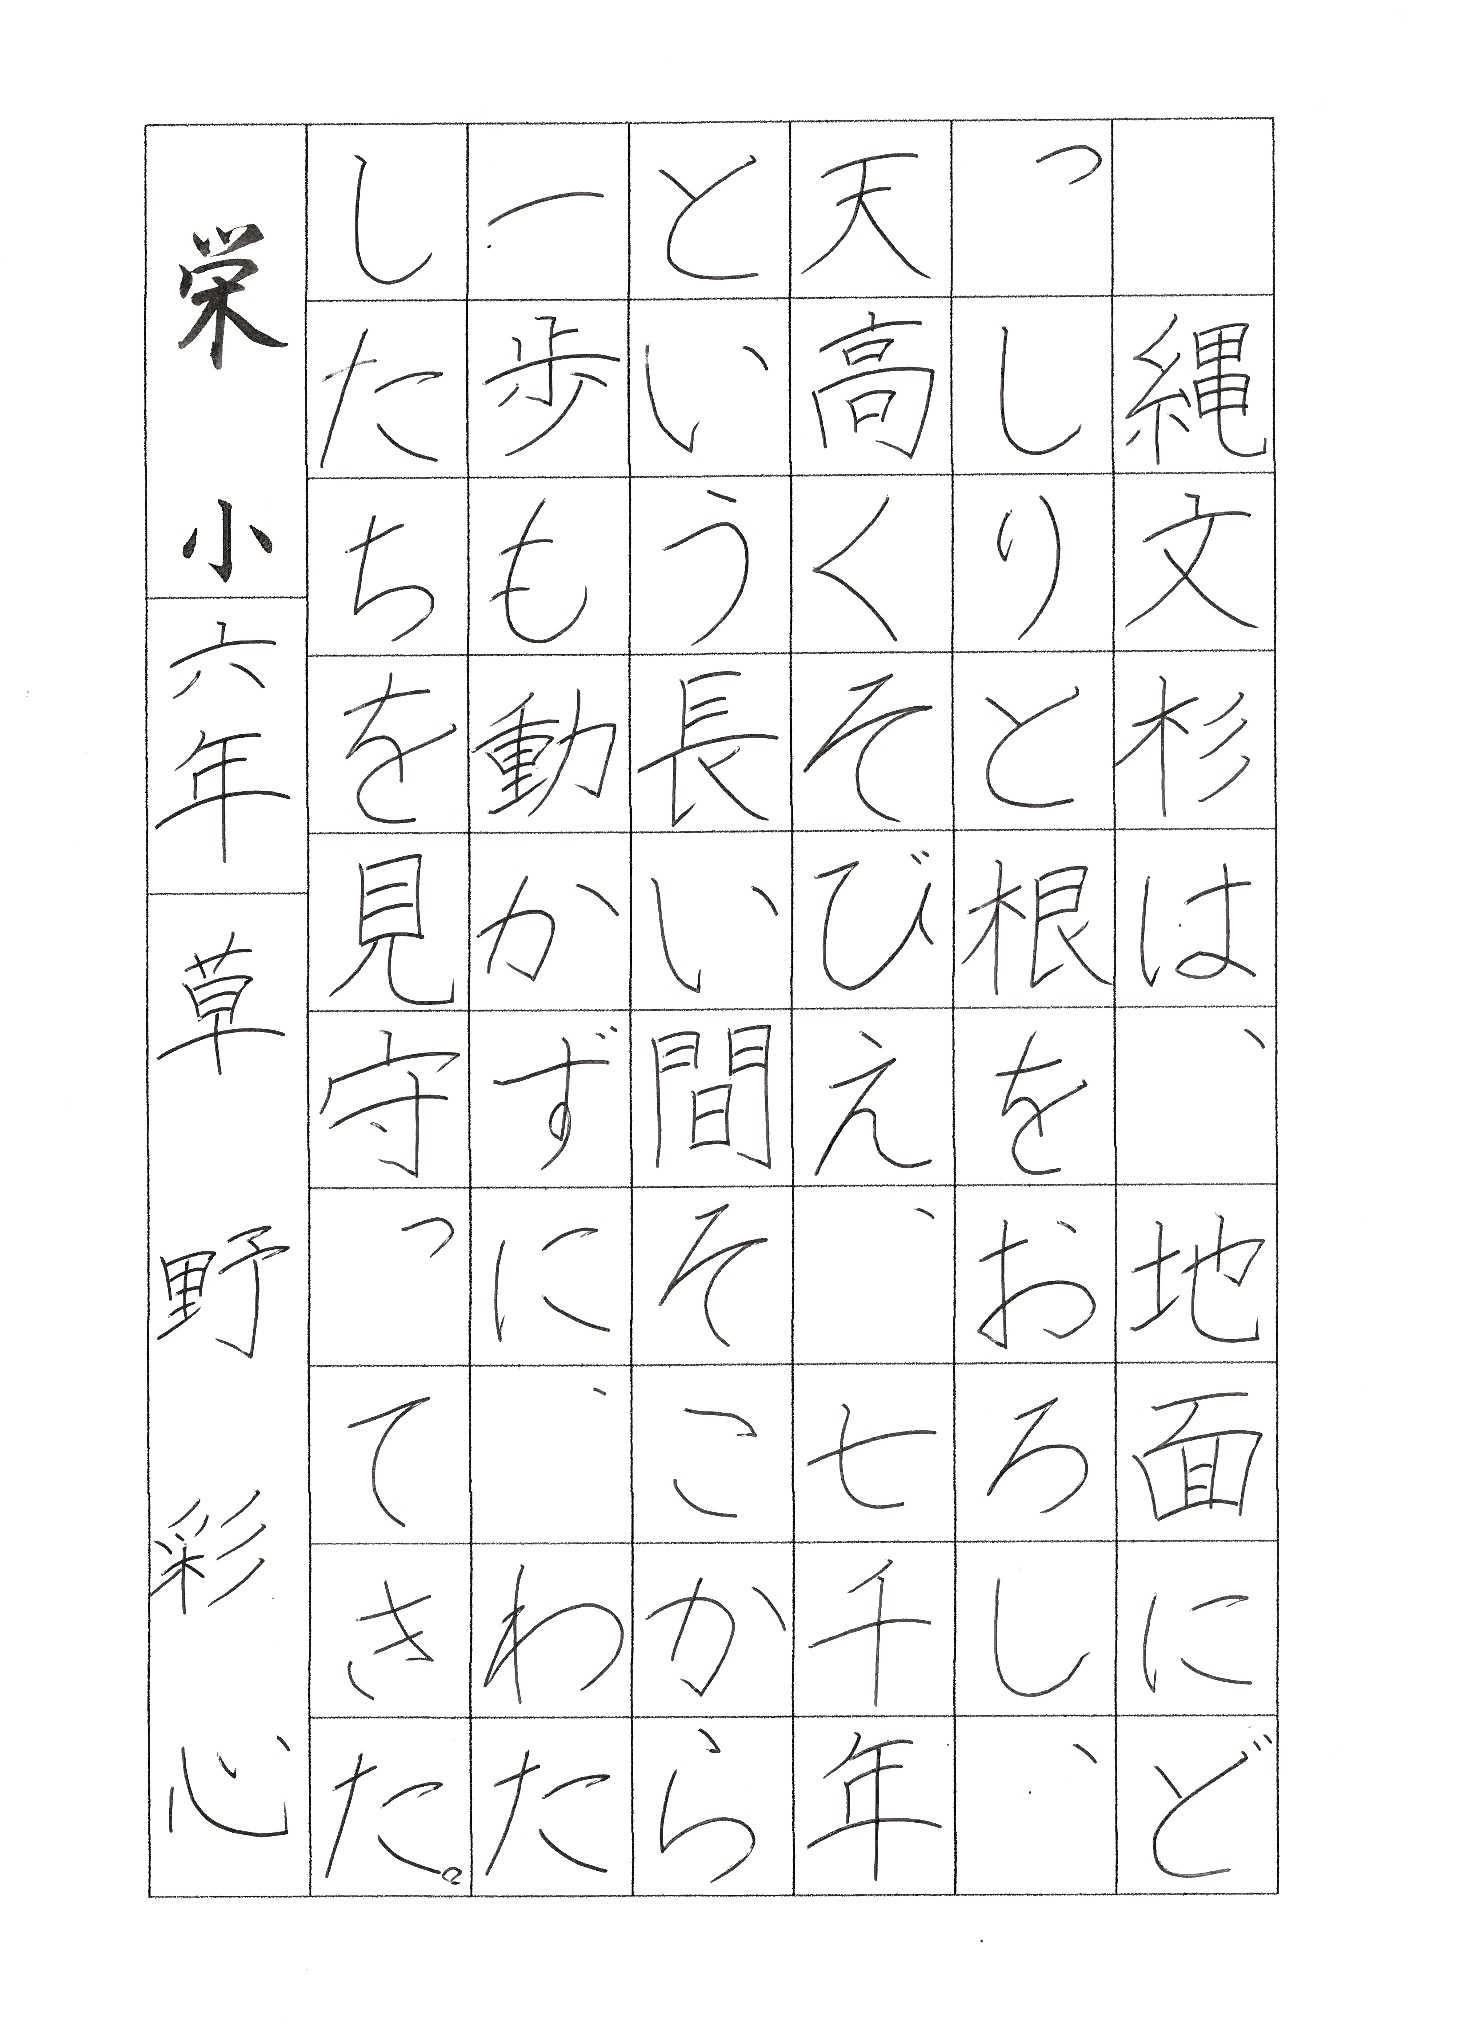 縄文杉は、地面にど
っしりと根をおろし、
天高くそびえ、七千年
という長い間そこから
一歩も動かずに、わた
したちを見守ってきた。
栄小六年草野彩心